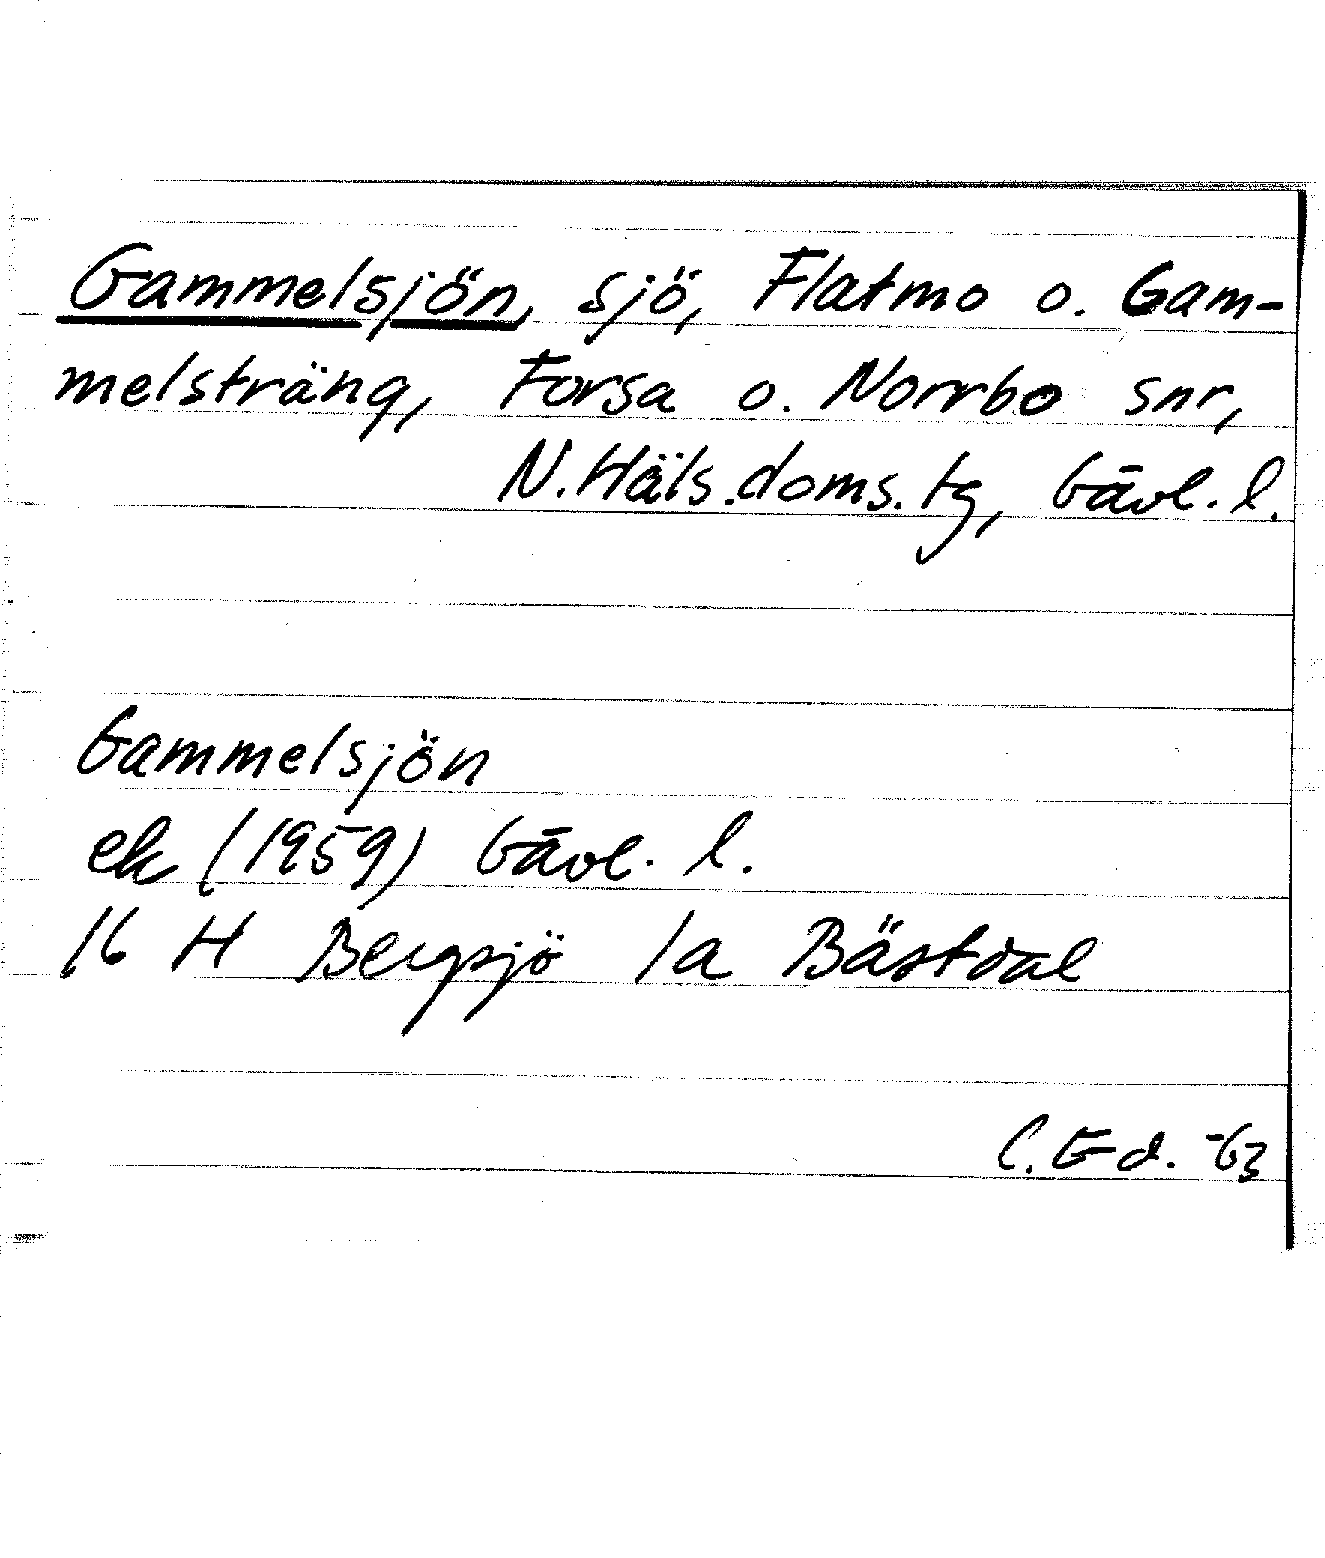 Gammelsjön, sjö, Flatmo o. Gam-
melsträng, Forsa o. Norrbo snr,
N. Häls. doms. tg, Gävl. l.
Gammelsjön
ek (1959) Gävl. l.
16 H Bergsjö 1a Bästdal
C. Ed. -63